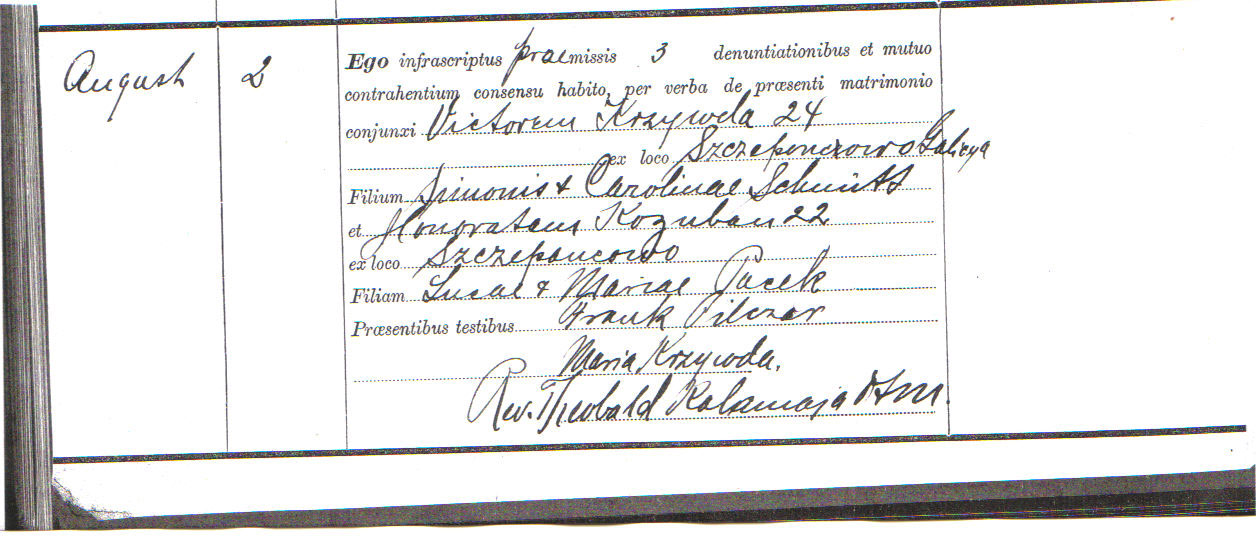 August 2 Ego infrascriptus praemissis 3 denuntiationibus et mutuo
contrahentium consensu habito, per verba de præsenti matrimonio
conjunxi Victorem Krzywda 24
ex loco Szczeponczowo Galicya
Filium Simonis & Carolinae Schmitt
et Honoratam Kozuban 22
ex loco Szczepancowo
Filiam Lucae & Mariae Pacek
Præsentibus testibus Frank Pilczar
Maria Krzywda.
Rev. Theobald Kalamaja OFM.